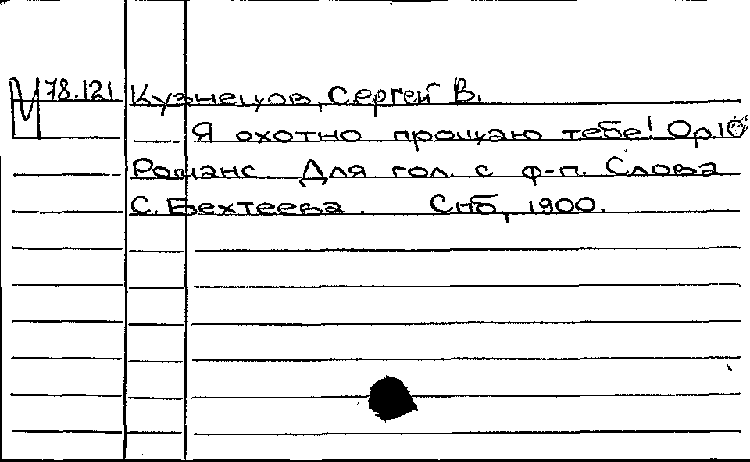 М 78.121 Кузнецов, Сергей В.
Я охотно прощаю тебе! Op.10
Романс. Для гол. с ф-п. Слова
С. Бехтеева. Спб, 1900.